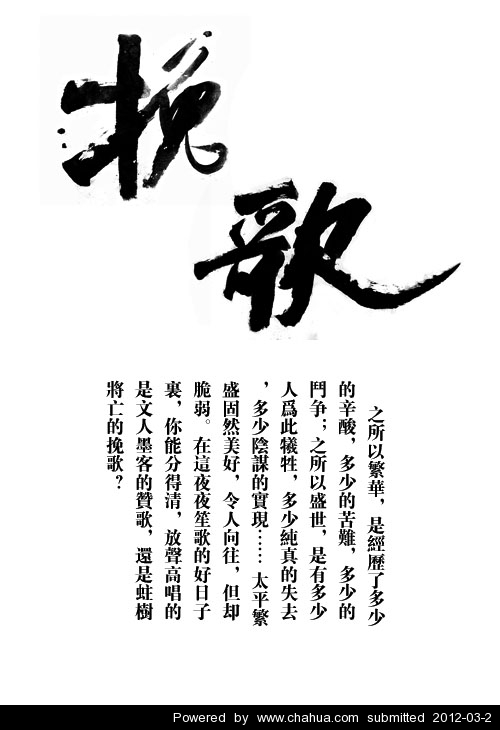 挽歌
之所以繁華，是經歷了多少
的辛酸，多少的苦難，多少的
鬥争；之所以盛世，是有多少
人爲此犧牲，多少純真的失去
，多少陰謀的實現……太平繁
盛固然美好，令人向往，但却
脆弱。在這夜夜笙歌的好日子
裏，你能分得清，放聲高唱的
是文人墨客的贊歌，還是蛀樹
將亡的挽歌？
Powered by www.chahua.com submitted 2012-03-2